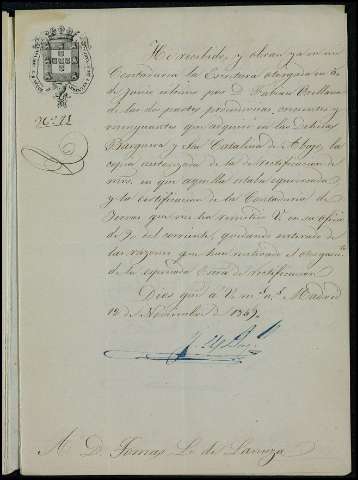 Nº 71
He recibido, y obran ya en mi
Contaduria la Escritura otorgada en
de Junio ultimo por D. Fabian Orellana
de las dos partes proindivisas, crecientes y
menguantes que adquirió en las Dehesas
Barquera y Sta Catalina de Abajo, la
copia autorizada de la de rectificacion de
en que aquella estaba equivocada
y la certificacion de la Contaduria de
que me ha remitido V. en su oficio
de 9 del corriente, quedando enterado de
las razones que han motivado el otorgamto
de la espresada Escra de rectificacion
Dios gue á V. ms as Madrid
12 de Noviembre de 1849.
A D. Tomas L. de Lanuza